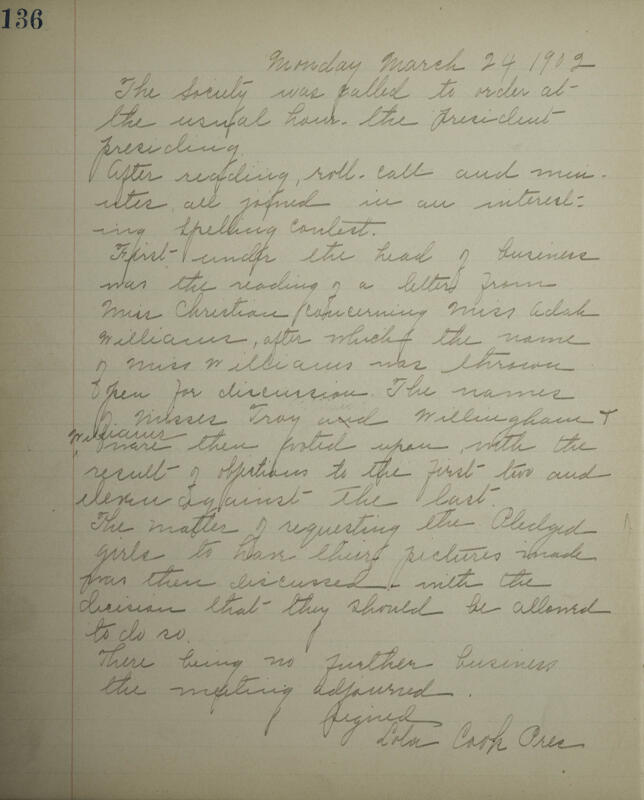 136
Monday March 24 1902
The Society was called to order at
the usual hour. the President
presiding.
After reading, roll-call and min-
utes, all joined in an interest-
ing spelling contest.
First under the head of business
was the reading of a letter from
Miss Christian concerning Miss Adah
Williams, after which the name
of Miss Williams was thrown
open for discussion. The names
of Misses Troy and Willingham +
Williams
were then voted upon, with the
result of objections to the first two and
eleven against the last.
The matter of requesting the Pledged
girls to have their pictures made
was then discussed - with the
decision that they should be allowed
to do so.
There being no further business
the meeting adjourned.
Signed
Lola Cook Pres